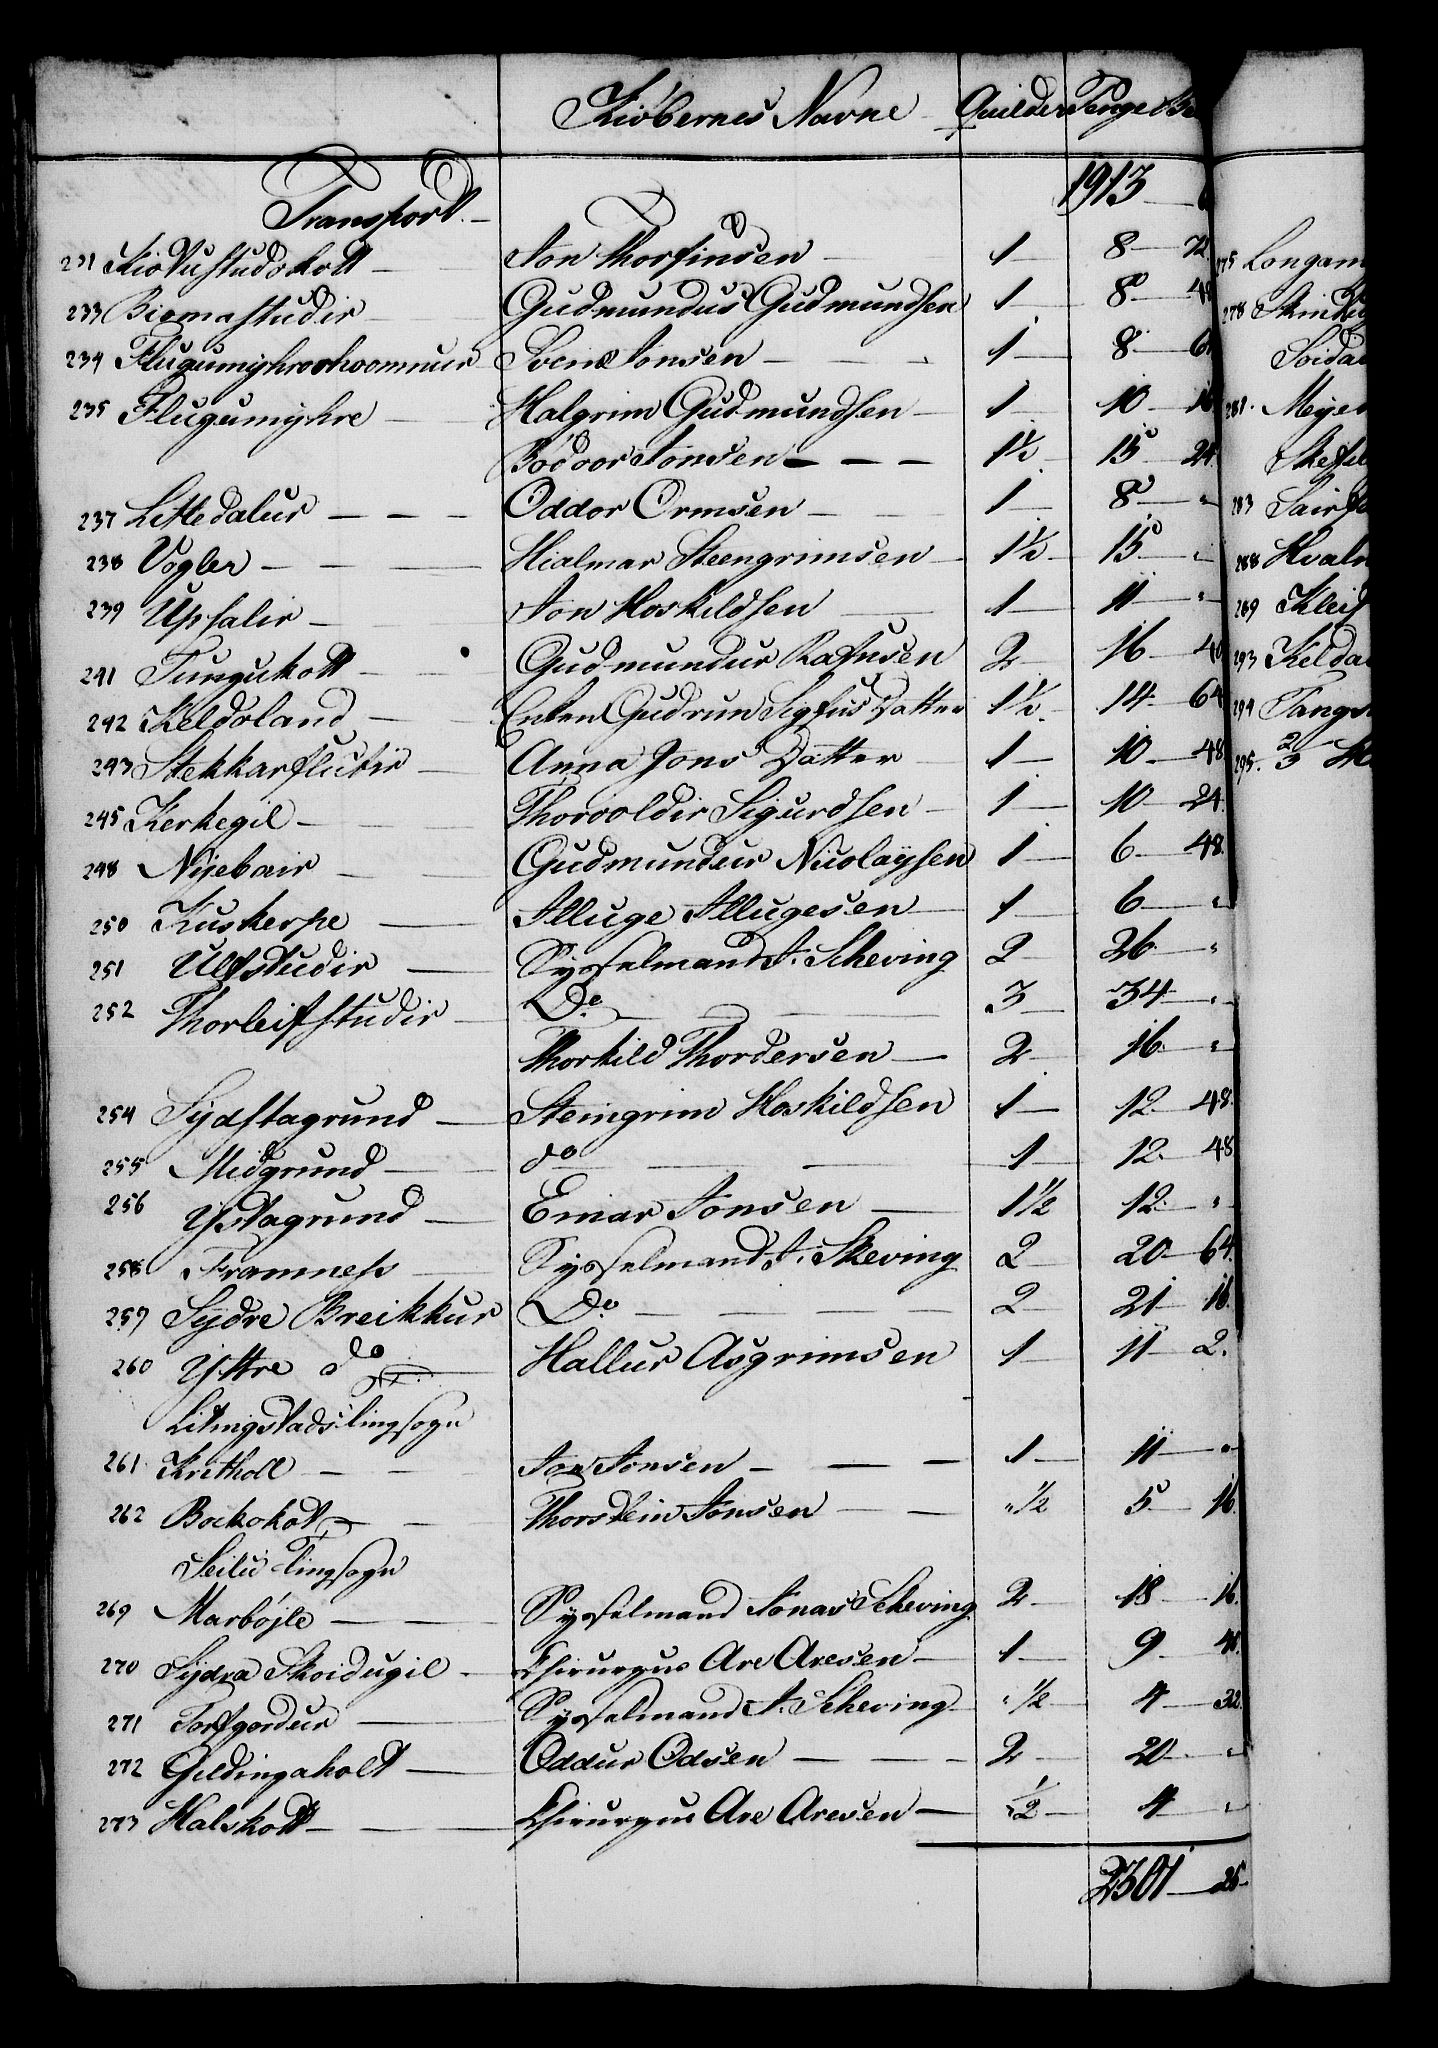 Kiöbernes Navne Quilder Penge Be
Transport. 1913
231 Kiövustudokott Jon Thorfinsen 1 8 72
233 Biomastudir Gudmundus Gudmundsen 1 8 48
234 Flugumyhrr Svend Jonsen 1 8 6
235 Flugumyhre Halgrim Gudmundsen 1 10 16
Bödvor Jonsen 1½ 15 24
237 Litledalur Oddor Ormsen 1 8 "
238 Vogler Hialmar Steengrimsen 1½ 15 "
239 Upsalir Jon Hoskildsen 1 11 "
241 Tungukott Gudmundur Rafnsen 2 16 40
242 Keldoland Enken Gudrun Sigfus Datter 1½ 14 64
243 Stekkarflutir Anna Jons Datter 1 10 48
245 Kerkegil Thorvoldir Sigurdsen 1 10 24
248 Nyebair Gudmundur Nicolaysen 1 6 48
250 Kuskerpe Illuge Illugesen 1 6 "
251 Ulfstudir Sysselmand J. Scheving 2 26 "
252 Thorleifstudir Do 3 34 "
Thorkild Thordersen 2 16 "
254 Sydstagrund Steingrim Hoskildsen 1 12 48
255 Midgrund do 1 12 48
256 Ystagrund Einar Jonsen 1½ 12 "
258 Framness Sysselmand J. Skeving 2 20 64
259 Sydre Breikkur Do 2 21 16
260 Yttre do Hallur Asgrimsen 1 11 2
Litingstads Tingsogn
261 Kritholl Jon Jonsen 1 11 "
262 Bockokot Thorstein Jonsen " ½ 5 16
Seilu Tingsogn
269 Marböjle Sysselmand Jonas Scheving 2 18 16
270 Sydra Skoidugil Chirurgus Are Aresen 1 9 48
271 Torfgordur Sysselmand J. Scheving " ½ 4 32
272 Geldingaholt Oddur Odsen 2 20 "
273 Halskott Chirurgus Are Aresen " ½ 4 "
2301 25
275 Longam
278 Skindu
Soida
281. Meyer
283 Sair
288 Hvaln
289 Kleif
293 Kelda
294 Tangs
295. 2/3